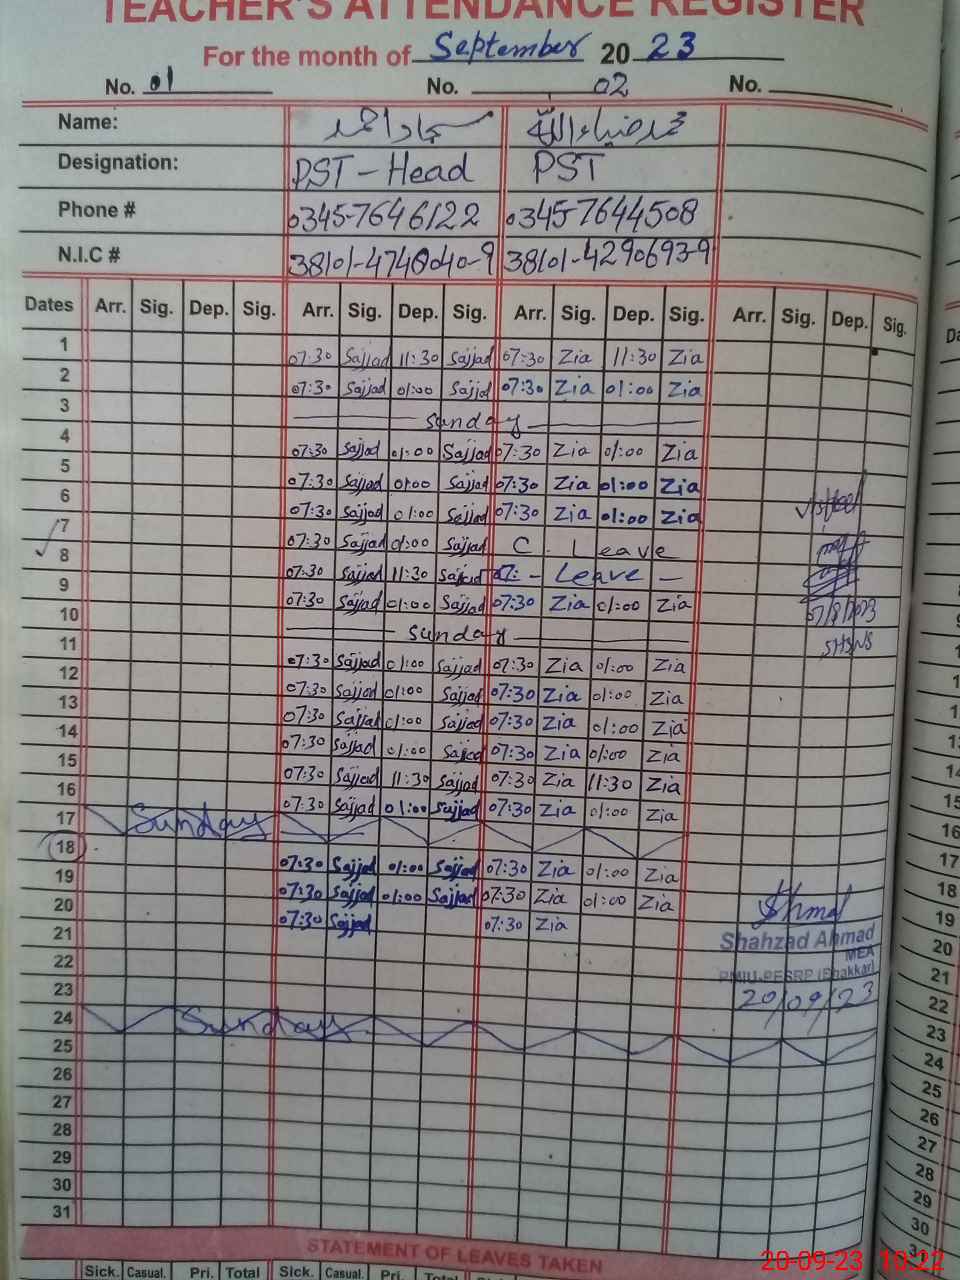 TEACHER'S ATTENDANCE REGISTER
For the month of September 2023
No. 01 No. 02 No.
Name: سجاد احمد محمد ضیاء اللہ
Designation: PST - Head PST
Phone # 0345-7646122 0345-7644508
N.I.C # 38101-4290693-9
Dates Arr. Sig. Dep. Sig. Arr. Sig. Dep. Sig. Arr. Sig. Dep. Sig. Arr. Sig. Dep. Sig.
1 07:30 Sajjad 11:30 Sajjad 07:30 Zia 11:30 Zia
2 07:30 Sajjad 01:00 Sajjad 07:30 Zia 01:00 Zia
3 Sunday
4 07:30 Sajjad 01:00 Sajjad 07:30 Zia 01:00 Zia
5 07:30 Sajjad 01:00 Sajjad 07:30 Zia 01:00 Zia
6 07:30 Sajjad 01:00 Sajjad 07:30 Zia 01:00 Zia
7 07:30 Sajjad 01:00 Sajjad C. Leave
8 07:30 Sajjad 11:30 Sajjad 07: - Leave -
9 07:30 Sajjad 01:00 Sajjad 07:30 Zia 01:00 Zia
10 Sunday
11 07:30 Sajjad 01:00 Sajjad 07:30 Zia 01:00 Zia
12 07:30 Sajjad 01:00 Sajjad 07:30 Zia 01:00 Zia
13 07:30 Sajjad 01:00 Sajjad 07:30 Zia 01:00 Zia
14 07:30 Sajjad 01:00 Sajjad 07:30 Zia 01:00 Zia
15 07:30 Sajjad 11:30 Sajjad 07:30 Zia 11:30 Zia
16 07:30 Sajjad 01:00 Sajjad 07:30 Zia 01:00 Zia
17 Sunday
18 07:30 Sajjad 01:00 Sajjad 07:30 Zia 01:00 Zia
19 07:30 Sajjad 01:00 Sajjad 07:30 Zia 01:00 Zia
20 07:30 Sajjad 07:30 Zia
21
Shahzad Ahmad
MEA
PMIU-PESRP (Bhakkar)
20/09/23
22
23
24 Sunday
25
26
27
28
29
30
31
STATEMENT OF LEAVES TAKEN
Sick. Casual. Pri. Total Sick. Casual. Pri. Total Sick.
16
17
18
19
20
21
22
23
24
25
26
27
28
29
30
20-09-23 10:22